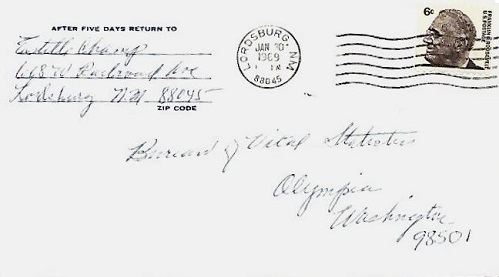 AFTER FIVE DAYS RETURN TO
Champ
618 W Railroad Ave
Lordsburg N.M. 88045
ZIP CODE
LORDSBURG, NM
JAN 30
1969
88045
6c
FRANKLIN D. ROOSEVELT
U.S. POSTAGE
Bureau of Vital Statistics
Olympia
Washington
98501